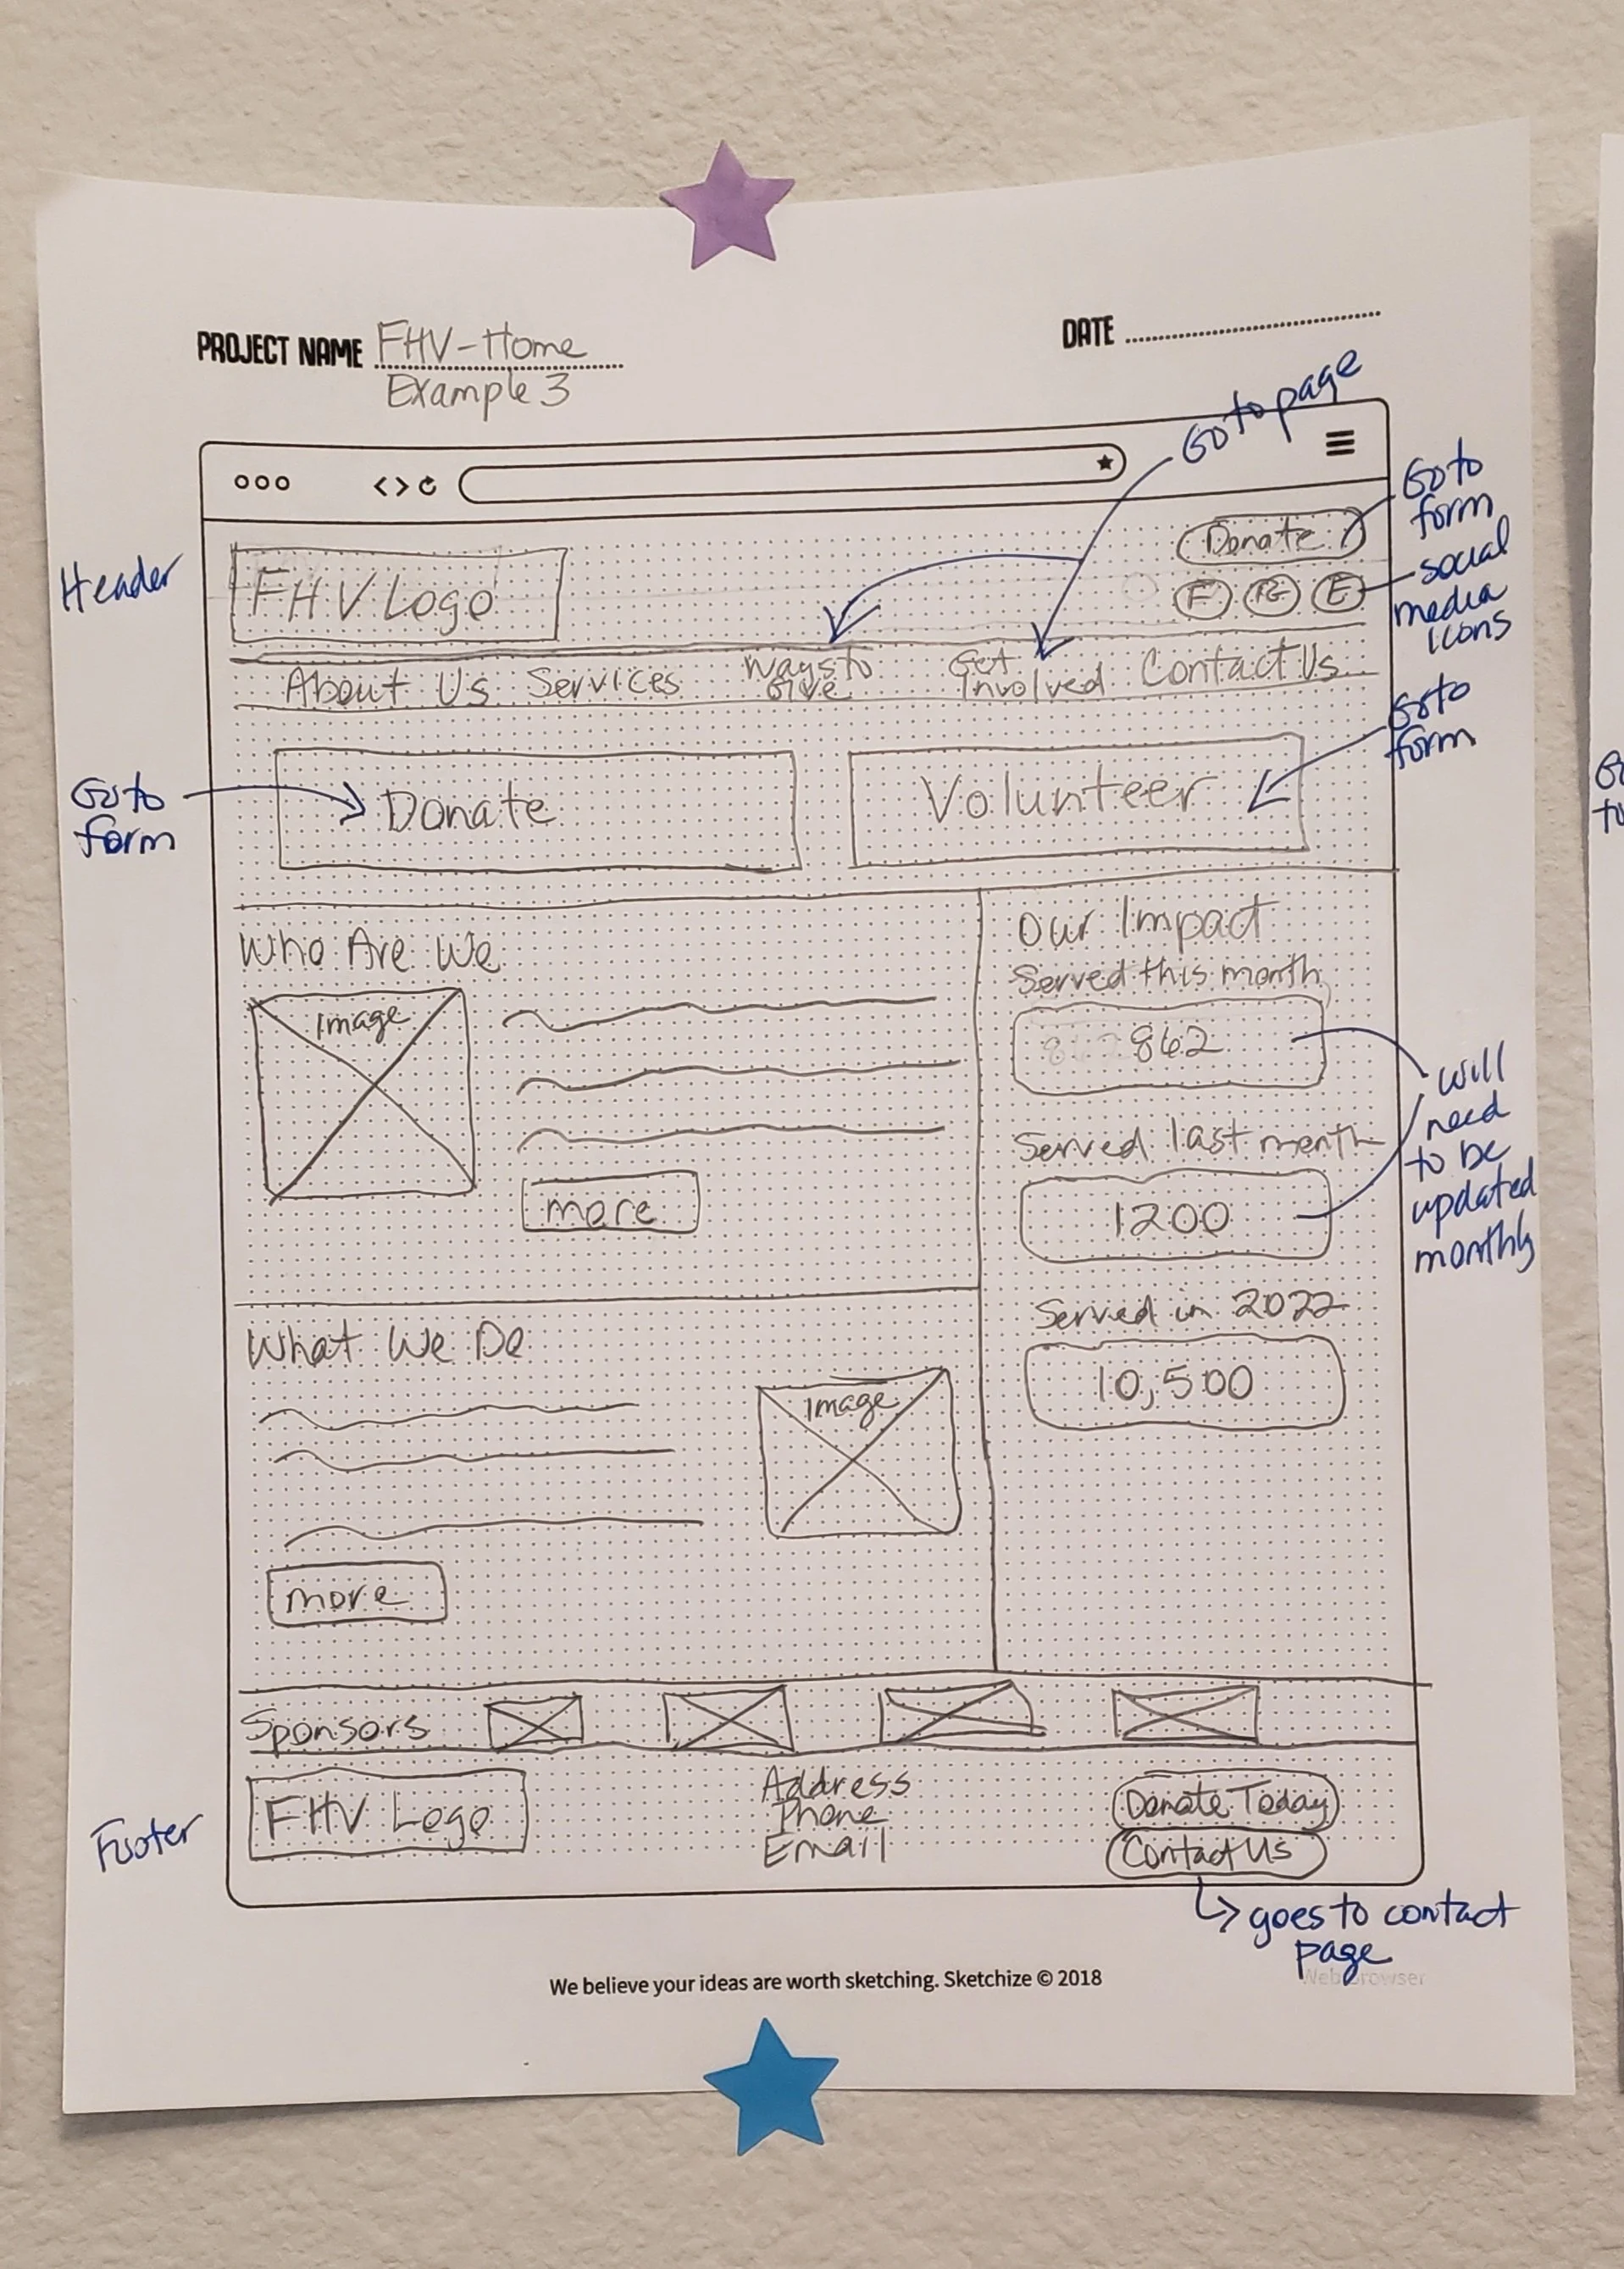 PROJECT NAME FHV-Home
Example 3
DATE
Go to page
Go to
form
Header
FHV Logo
Donate
F
E
social
media
icons
About Us
Services
Ways to
Give
Get
Involved
Contact Us
Go to
form
Donate
Volunteer
Go to
form
Who Are We
Image
more
Our Impact
Served this month
862
Served last month
1200
will
need
to be
updated
monthly
Served in 2022
10,500
What We Do
Image
more
Sponsors
Footer
FHV Logo
Address
Phone
Email
Donate Today
Contact Us
goes to contact
page
We believe your ideas are worth sketching. Sketchize © 2018
Web Browser